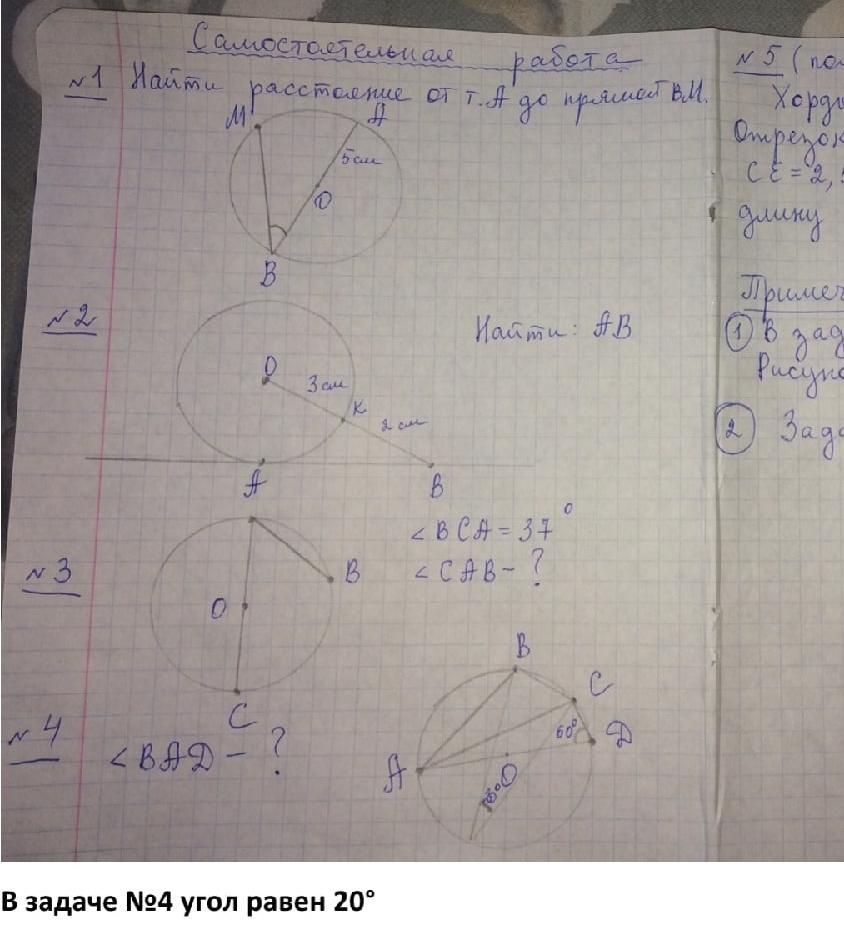 Самостоятельная работа
№1 Найти расстояние от т. А до прямой ВМ.
М
А
5см
О
В
№2
Найти: АВ
О
3см
К
2см
А
В
№3
∠BCA = 37°
∠CAB - ?
В
О
С
№4
∠BAD - ?
В
С
60°
D
А
О
№5 (
Хорды
Отрезок
CE = 2,
длину
Примеч
① В зад
Рисунк
② Зада
В задаче №4 угол равен 20°